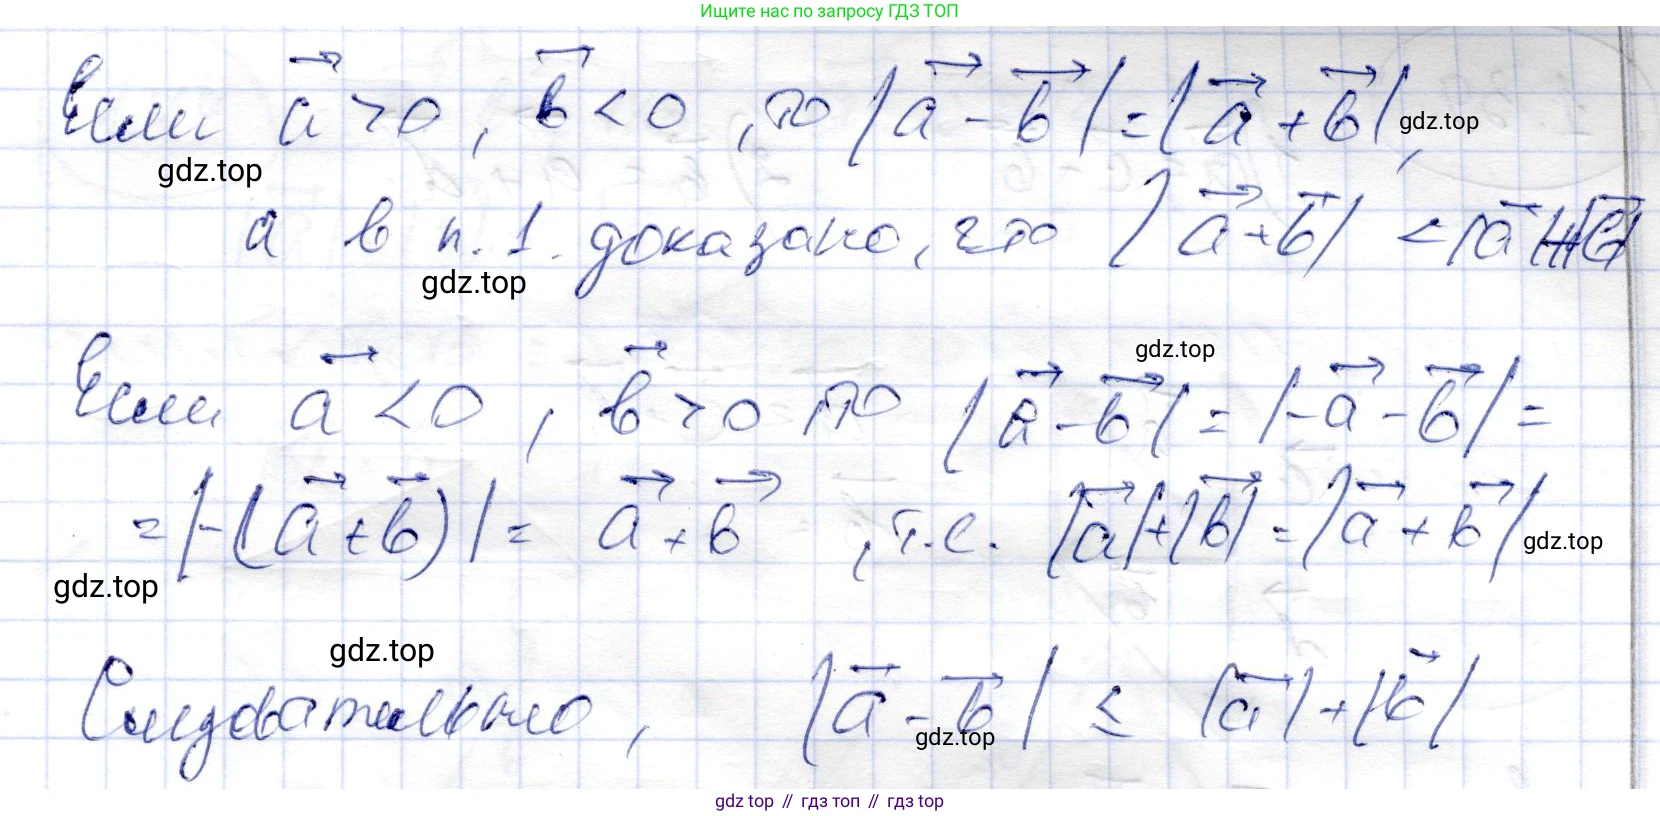 Ищите нас по запросу ГДЗ ТОП
Если a⃗ > 0, b⃗ < 0, то |a⃗ - b⃗| = |a⃗ + b⃗|, gdz.top
gdz.top
а в п. 1. доказано, что |a⃗ + b⃗| < |a⃗|+|b⃗|
gdz.top
gdz.top
Если a⃗ < 0, b⃗ > 0 то |a⃗ - b⃗| = |-a⃗ - b⃗| =
= |-(a⃗ + b⃗)| = a⃗ + b⃗, т.е. |a⃗|+|b⃗| = |a⃗ + b⃗| gdz.top
gdz.top
gdz.top
Следовательно, |a⃗ - b⃗| ≤ |a⃗|+|b⃗|
gdz.top
gdz top // гдз топ // gdz top